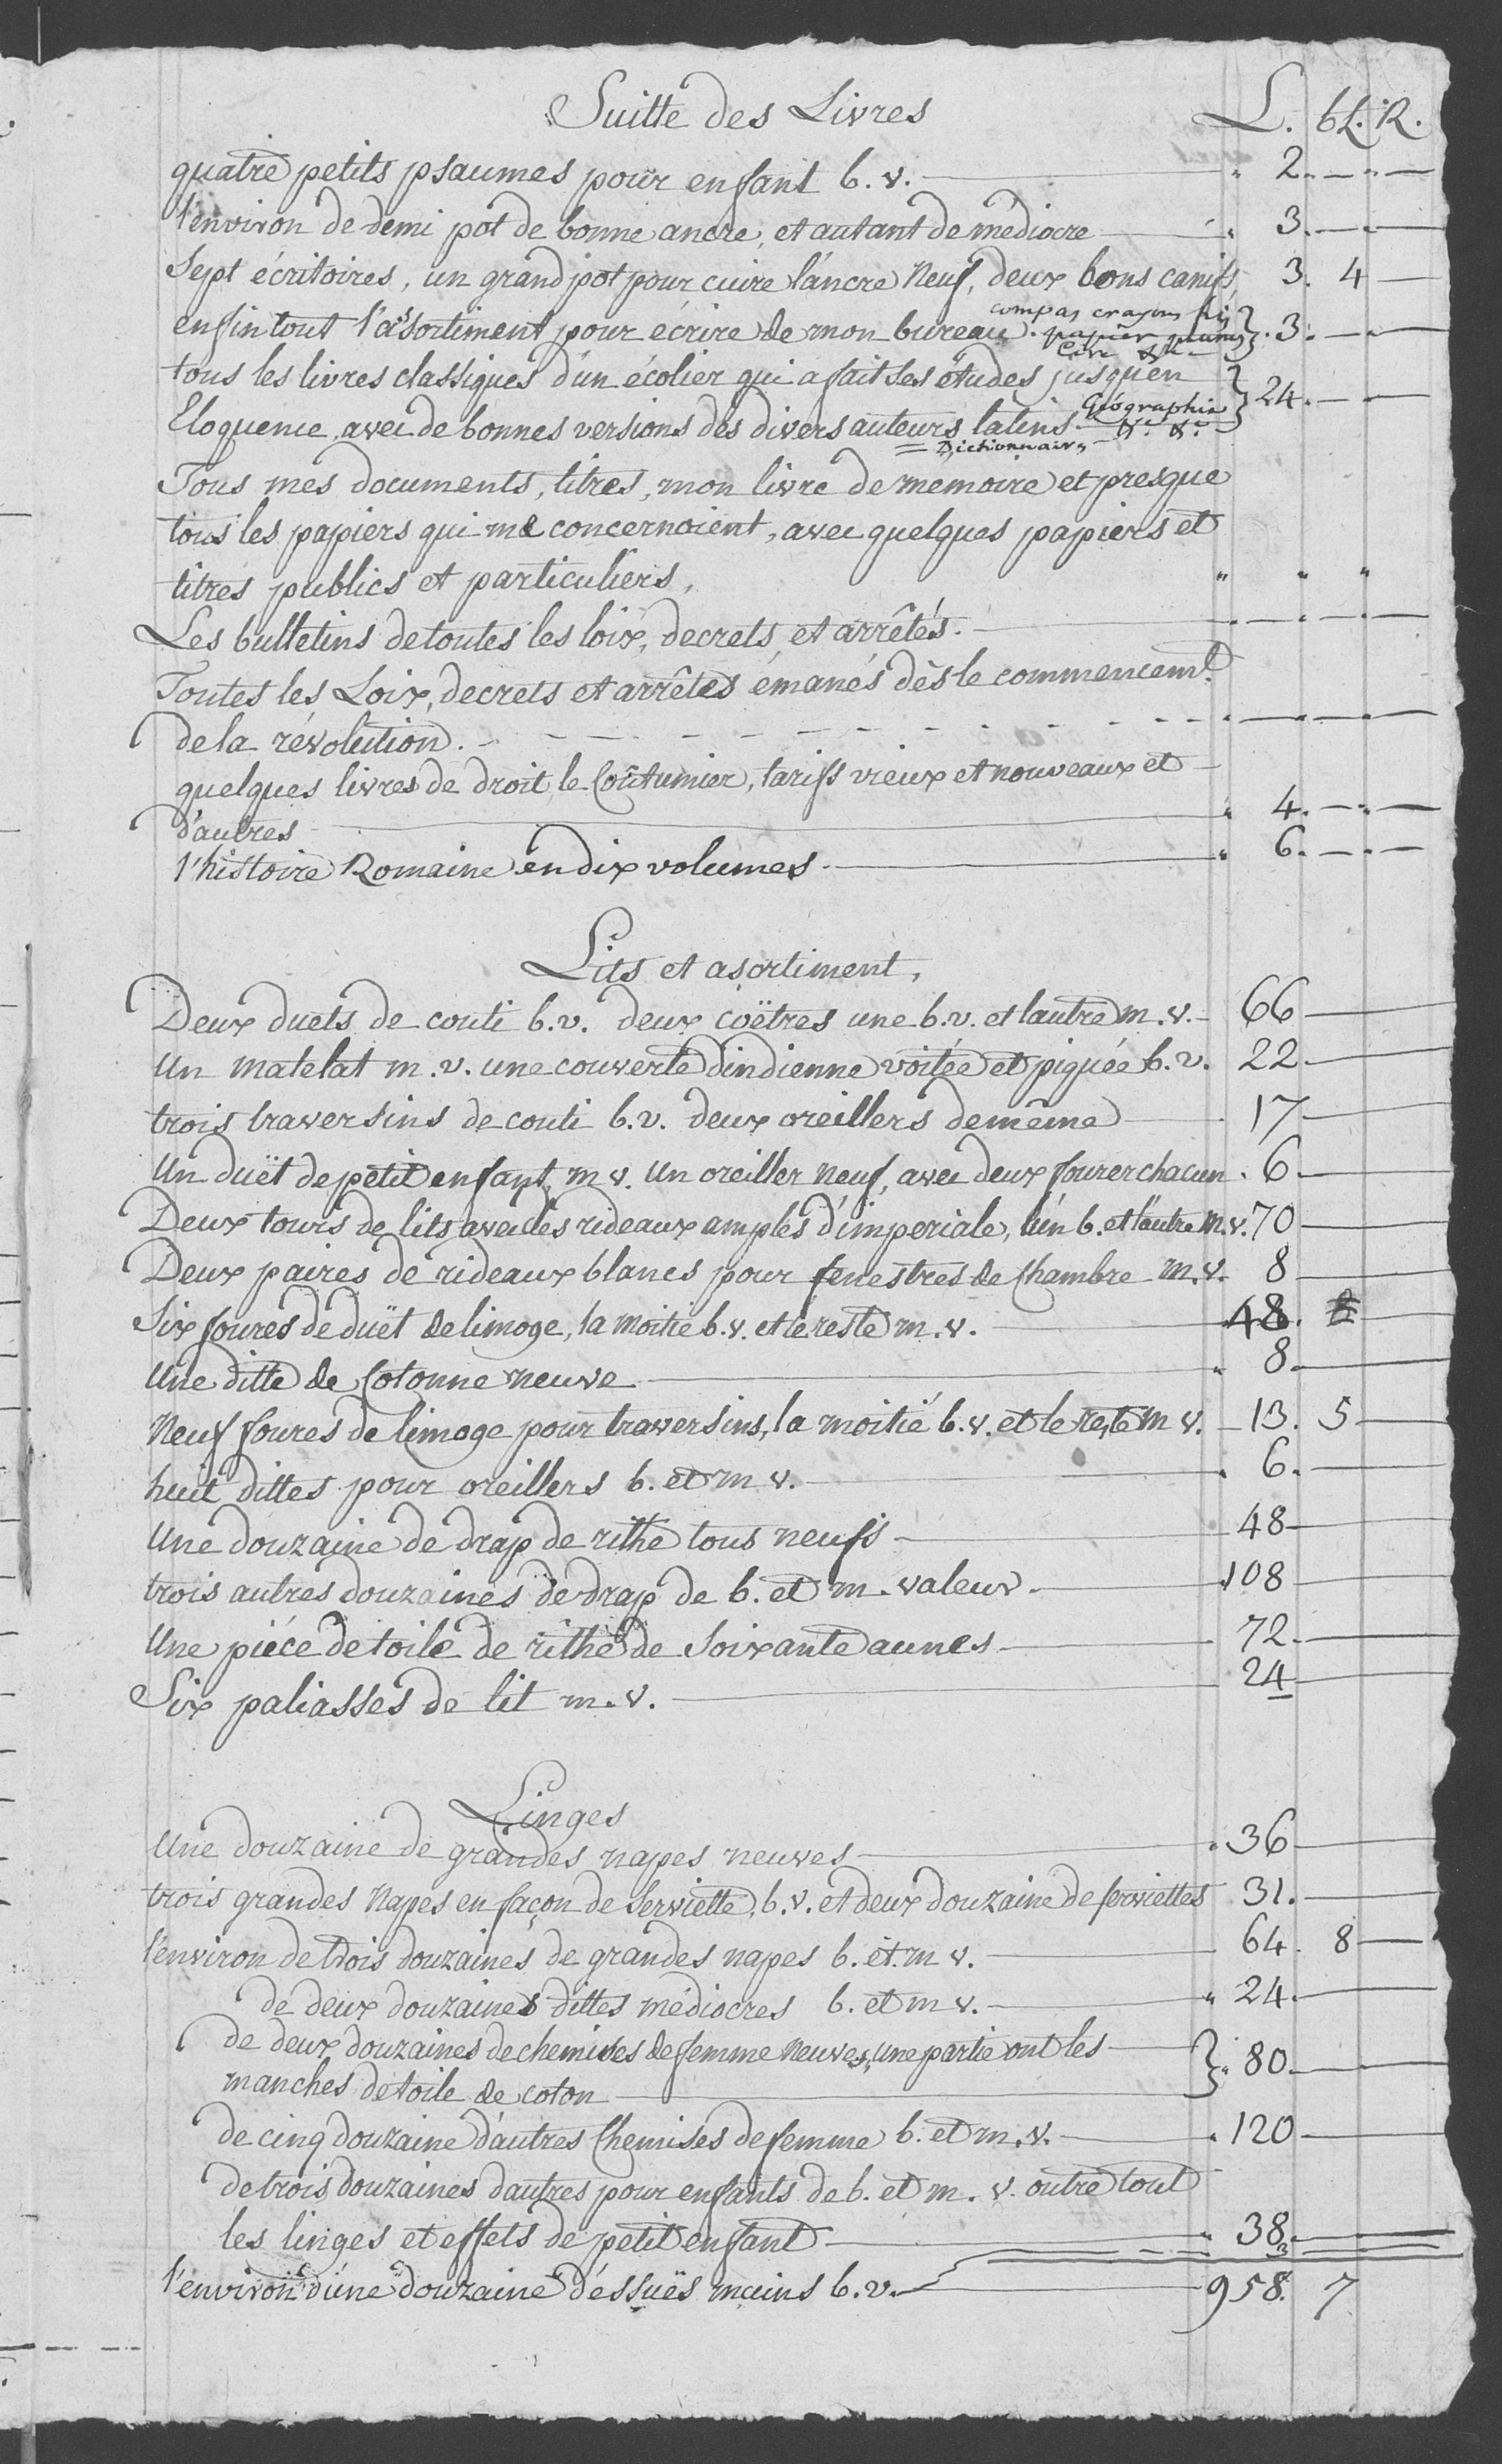 Suitte des Livres L. bz. R.
quatre petits psaumes pour enfant b. v. 2.
l'environ de demi pot de bonne ancre, et autant de médiocre 3.
Sept écritoires, un grand pot pour cuire l'ancre neuf, deux bons canifs 3. 4
compas crayons
enfin tout l'assortiment pour écrire de mon bureau. papier plumes 3.
Cire &c
tous les livres classiques d'un écolier qui a fait ses études jusqu'en
Eloquence avec de bonnes versions des divers auteurs latins Géographie &c. &c. 24.
Dictionnaires
Tous mes documents, titres, mon livre de memoire et presque
tous les papiers qui me concernoient, avec quelques papiers et
titres publics et particuliers,
Les bulletins de toutes les loix, decrets, et arrêtés.
Toutes les Loix, decrets et arrêtés émanés dès le commencemt.
de la révolution.
quelques livres de droit, le Coûtumier, tarifs vieux et nouveaux et
d'autres 4.
l'histoire Romaine en dix volumes 6.
Lits et asortiment,
Deux duets de couti b.v. deux coëtres une b.v. et l'autre m.v. 66
Un matelat m.v. une couverte d'indienne voitée et piquée b.v. 22
trois traversins de couti b.v. deux oreillers de même 17
Un duët de petit enfant, m v. Un oreiller neuf, avec deux fourer chacun 6
Deux tours de lits avec des rideaux amples d'imperiale, l'un b. et l'autre m.v. 70
Deux paires de rideaux blancs pour fenestres de Chambre m.v. 8
Six foures de duët de limoge, la moitié b.v. et le reste m.v. 48.
Une ditte de Cotonne neuve 8.
Neuf foures de limoge pour traversins, la moitié b.v. et le reste m v. 13. 5
huit dittes pour oreillers b. et m v. 6.
Une douzaine de drap de rithe tous neufs 48
trois autres douzaines de drap de b. et m. valeur. 108
Une piéce de toile de rithe de soixante aunes 72.
Six paliasses de lit m.v. 24
Linges
Une douzaine de grandes napes neuves 36
trois grandes Napes en façon de Serviette, b.v. et deux douzaine de serviettes 31.
l'environ de trois douzaines de grandes napes b. et m v. 64. 8
de deux douzaines dittes médiocres b. et m v. 24.
de deux douzaines de chemises de femme neuves, une partie ont les
manches de toile de coton 80.
de cinq douzaine d'autres Chemises de femme b. et m.v. 120
de trois douzaines d'autres pour enfants de b. et m. v. outre tout
les linges et effets de petit enfant 38.
3
l'environ d'une douzaine d'éssuës mains b.v. 958. 7